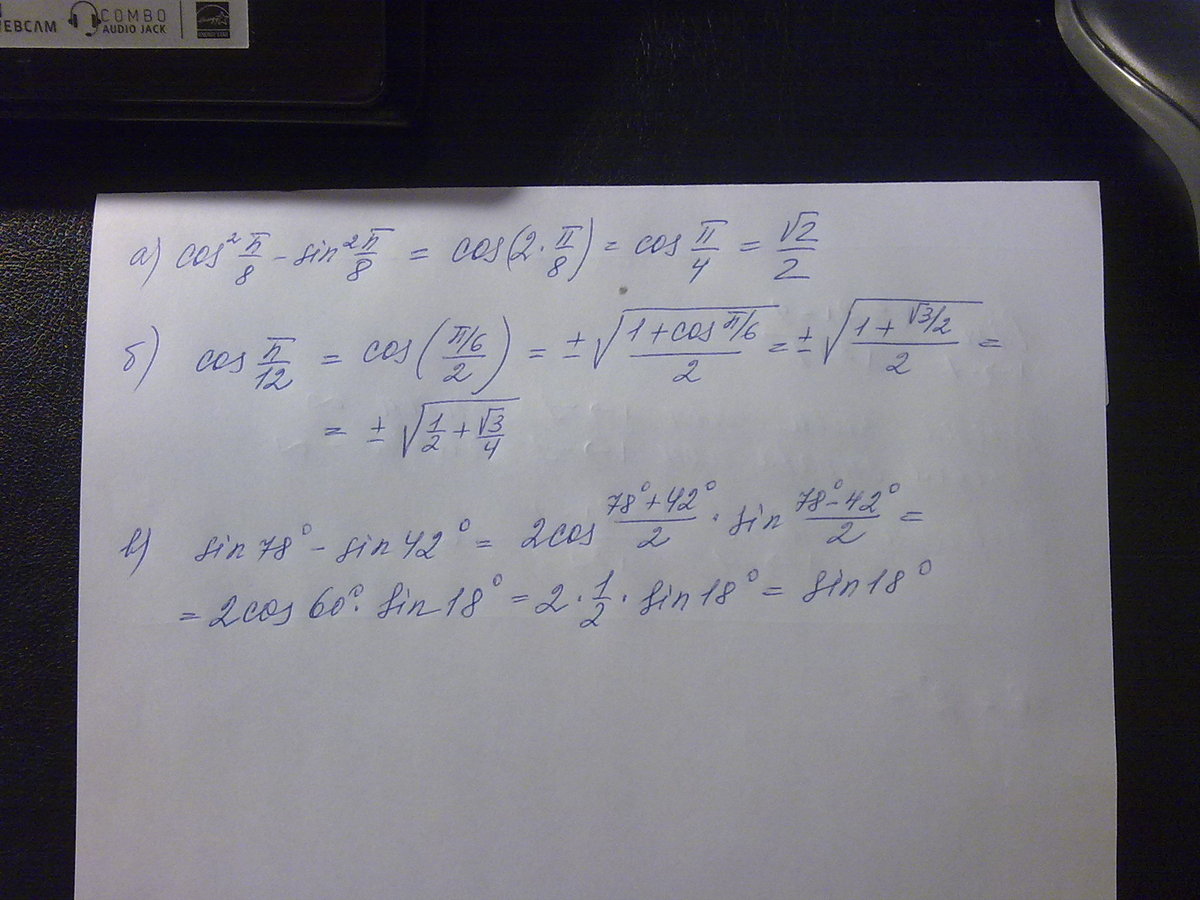 WEBCAM COMBO AUDIO JACK ENERGY STAR
а) cos² π/8 - sin² π/8 = cos(2·π/8) = cos π/4 = √2/2
б) cos π/12 = cos((π/6)/2) = ±√((1+cos π/6)/2) = ±√((1+√3/2)/2) =
= ±√(1/2 + √3/4)
в) sin 78° - sin 42° = 2cos (78°+42°)/2 · sin (78°-42°)/2 =
= 2cos 60° · sin 18° = 2·1/2 · sin 18° = sin 18°